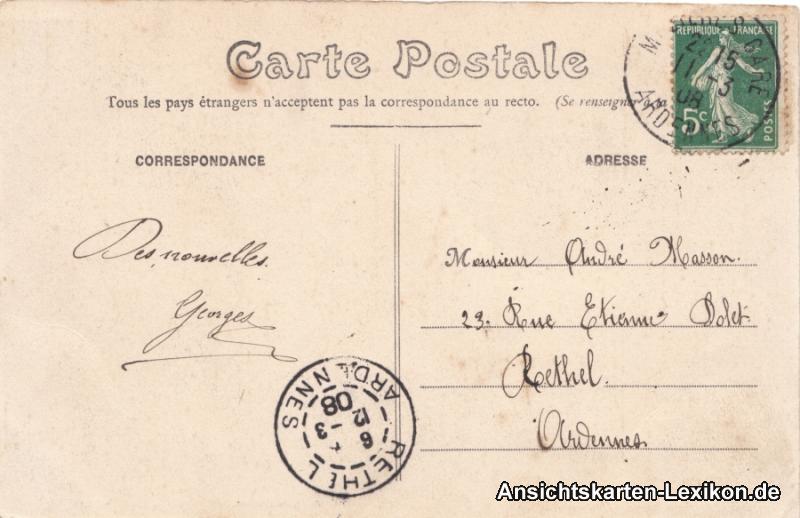 Carte Postale
Tous les pays étrangers n'acceptent pas la correspondance au recto. (Se renseigner à la
CORRESPONDANCE
ADRESSE
REPUBLIQUE FRANÇAISE
5c
POSTES
GARE
15
11 - 3
08
ARDENNES
Des nouvelles.
Georges
Monsieur André Masson.
23. Rue Etienne Dolet
Rethel.
Ardennes
RETHEL
ARDENNES
12 - 3
08
Ansichtskarten-Lexikon.de